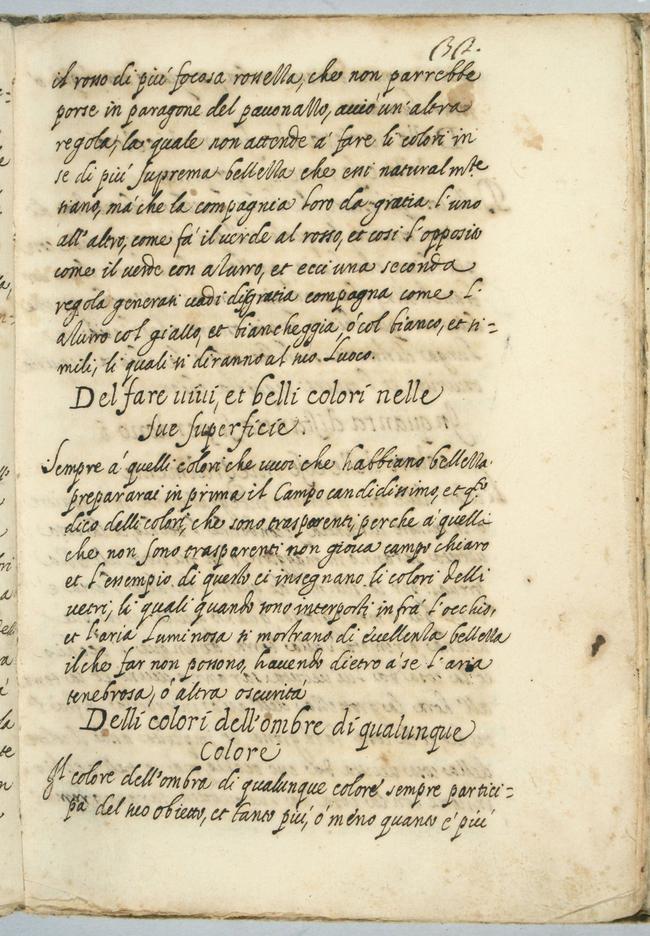 37.
il rosso di piú focosa rossezza, che non parrebbe
porse in paragone del pauonazzo, auió un'altra
regola, la quale non attende á fare li colori in
se di piú suprema bellezza che essi naturalmte
siano, ma che la compagnia loro dà gratia l'uno
all'altro, come fá il verde al rosso, et cosi l'opposito
come il verde con azurro, et ecci una seconda
regola generati uadi disgratia compagna come l'
azurro col giallo, et biancheggia, ó col bianco, et si=
mili, li quali si diranno al suo luoco.
Del fare uiui, et belli colori nelle
sue superficie.
Sempre á quelli colori che uuoi che habbiano bellezza
prepararai in prima il Campo candidissimo, et qsto
dico delli colori, che sono trasparenti, perche á quelli
che non sono trasparenti non gioua campo chiaro
et l'esempio di questo ci insegnano li colori delli
uetri, li quali quando sono interposti infrá l'occhio,
et l'aria luminosa si mostrano di eccellenza bellezza
il che far non possono, hauendo dietro á se l'aria
tenebrosa, ó altra oscuritá
Delli colori dell'ombre di qualunque
Colore
Il colore dell'ombra di qualunque colore sempre partici=
pa del suo obietto, et tanto piú, ó meno quanto é piú